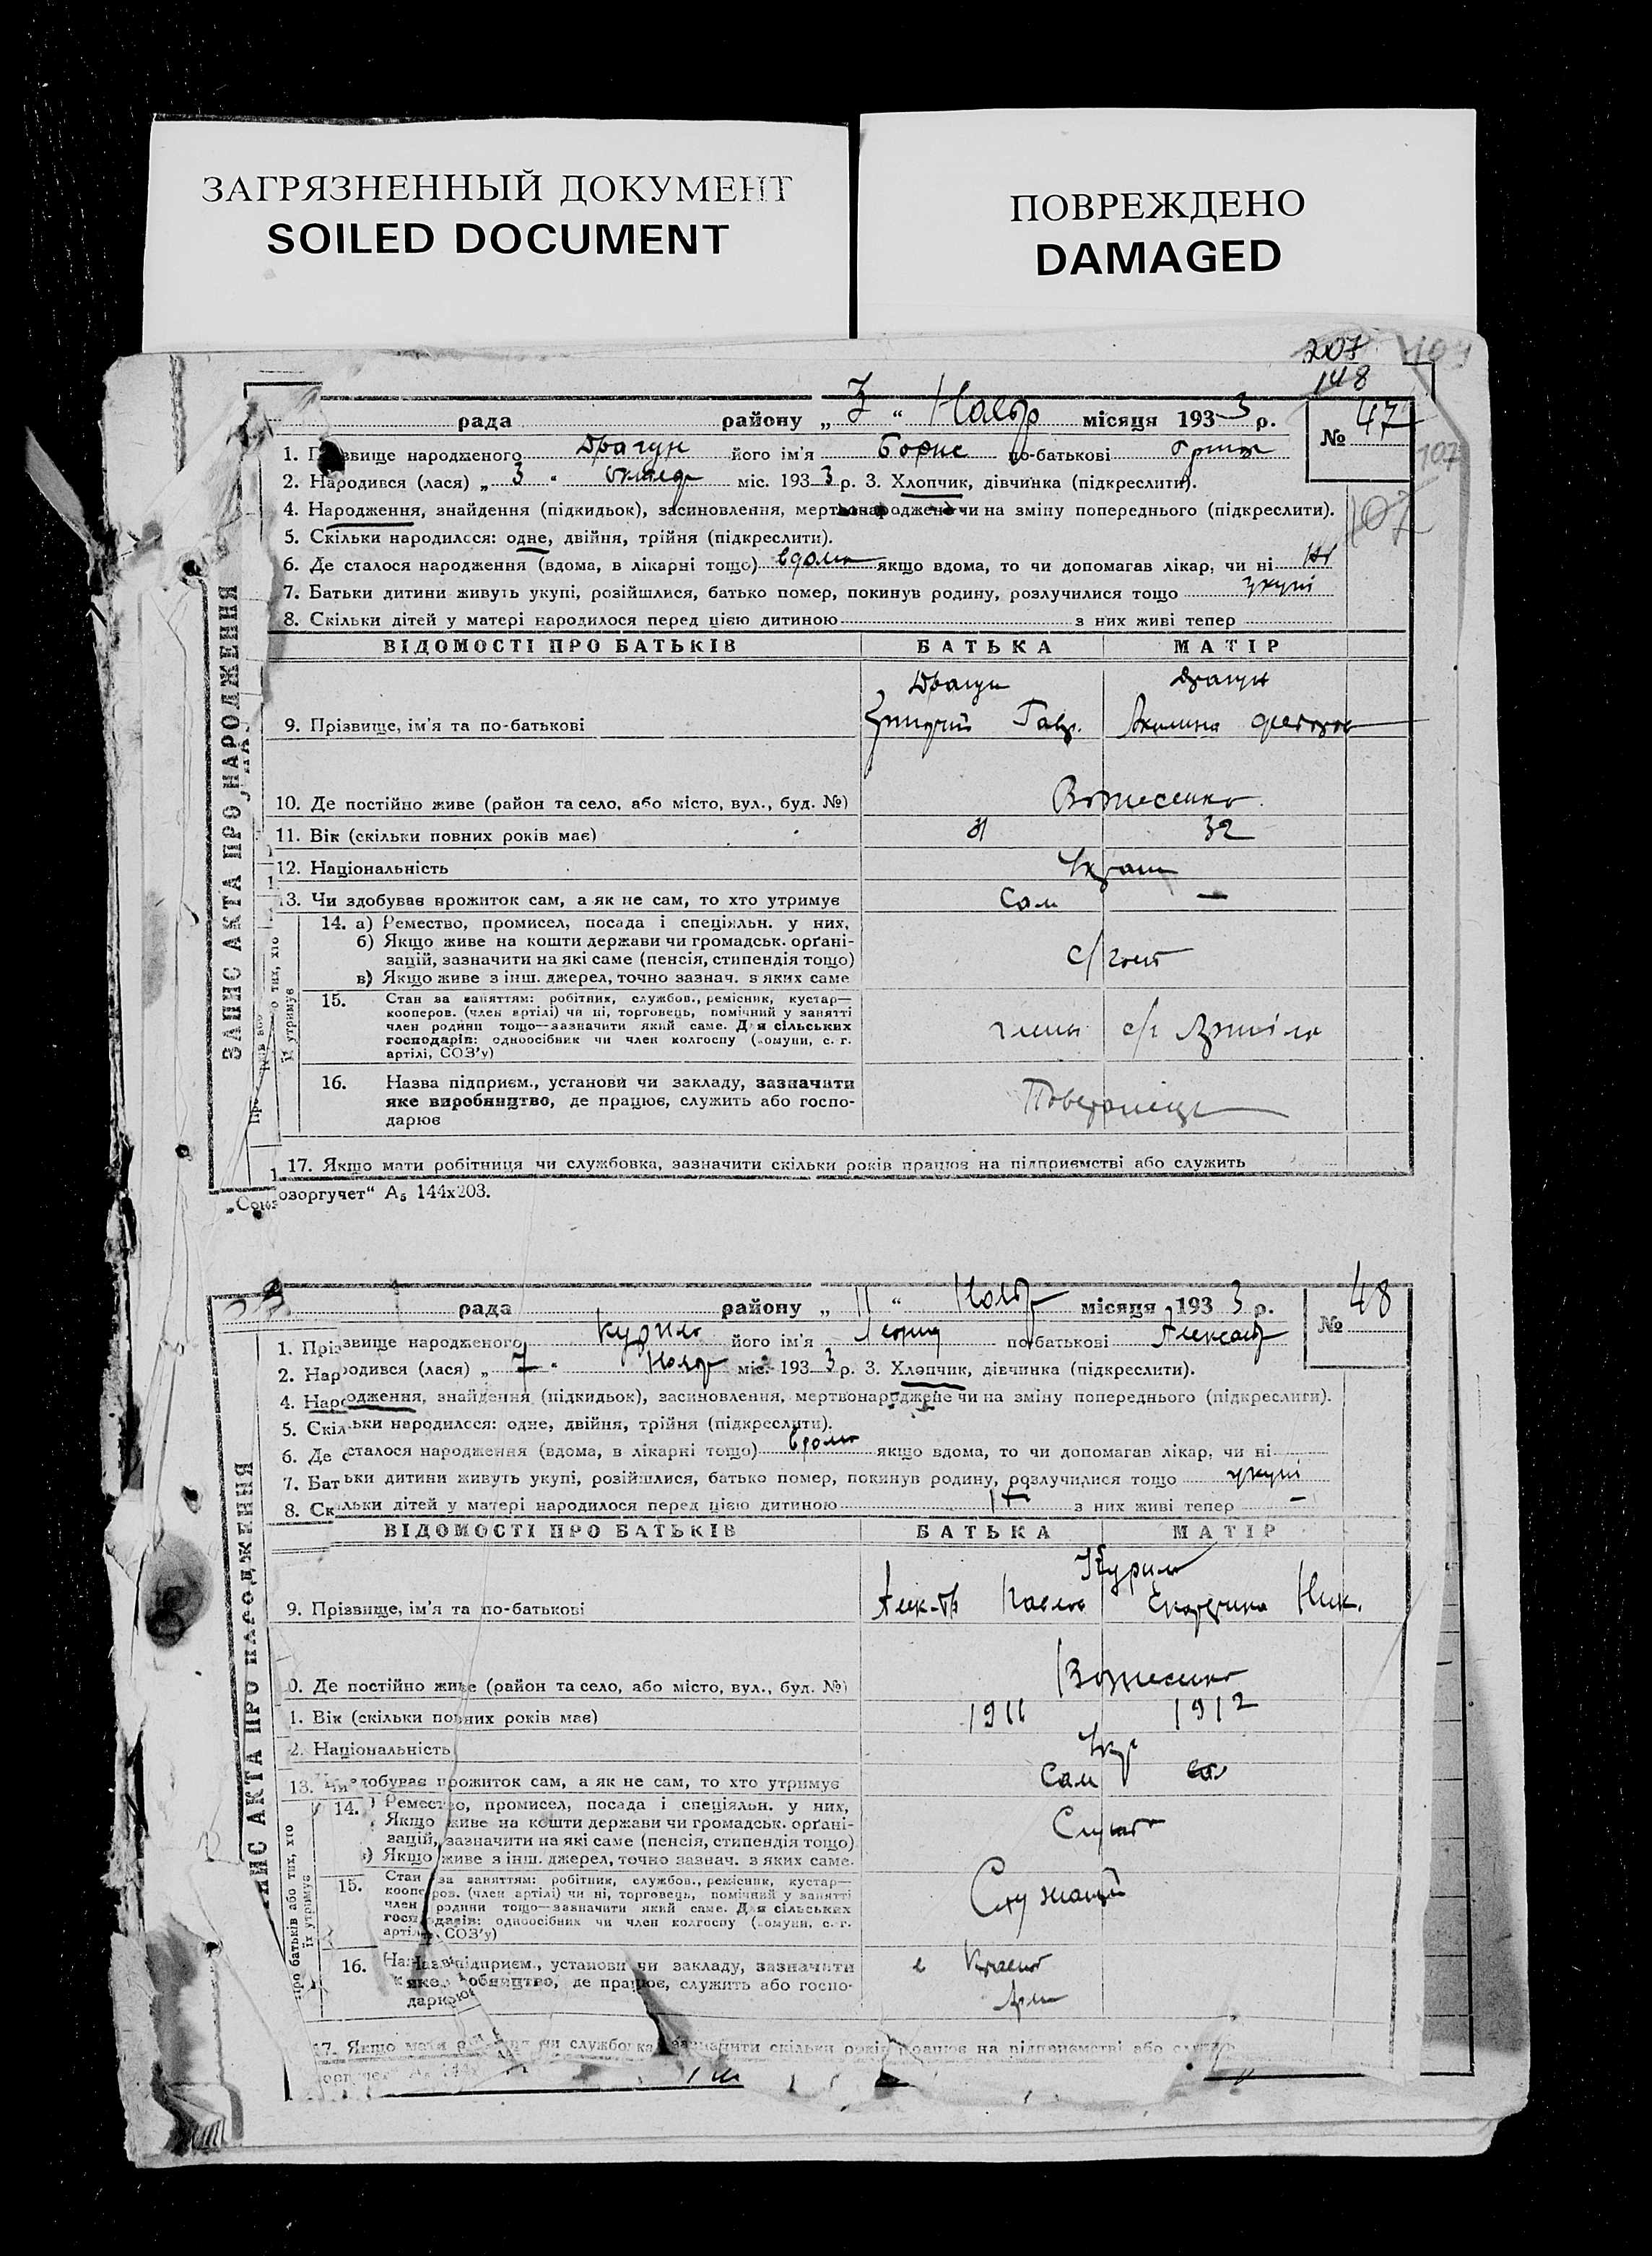 ЗАГРЯЗНЕННЫЙ ДОКУМЕНТ
SOILED DOCUMENT
ПОВРЕЖДЕНО
DAMAGED
207
148
рада району „ 3 “ Нояб місяця 193 3 р.
№ 47
107
107
1. П звище народженого Драгун його ім'я Борис по-батькові Григ
2. Народився (лася) „ 3 " Октяб міс. 193 3 р. 3. Хлопчик, дівчинка (підкреслити).
4. Народження, знайдення (підкидьок), засиновлення, мертвонароджене чи на зміну попереднього (підкреслити).
5. Скільки народилося: одне, двійня, трійня (підкреслити).
6. Де сталося народження (вдома, в лікарні тощо) вдома якщо вдома, то чи допомагав лікар, чи ні Ні
7. Батьки дитини живуть укупі, розійшлися, батько помер, покинув родину, розлучилися тощо укупі
8. Скільки дітей у матері народилося перед цією дитиною з них живі тепер
ЗАПИС АКТА ПРО НАРОДЖЕННЯ
ВІДОМОСТІ ПРО БАТЬКІВ БАТЬКА МАТІР
Драгун Драгун
9. Прізвище, ім'я та по-батькові Григорій Гавр. Акилина Федоров
10. Де постійно живе (район та село, або місто, вул., буд. №) Вознесенка
11. Вік (скільки повних років має) 31 32
12. Національність Украин
13. Чи здобуває прожиток сам, а як не сам, то хто утримує Сам —
14. а) Ремество, промисел, посада і спеціяльн. у них,
б) Якщо живе на кошти держави чи громадськ. орґані-
зацій, зазначити на які саме (пенсія, стипендія тощо)
в) Якщо живе з інш. джерел, точно зазнач. з яких саме
с/госп
15. Стан за заняттям: робітник, службов., ремісник, кустар—
кооперов. (член артілі) чи ні, торговець, помічний у занятті
член родини тощо—зазначити який саме. Для сільських
господарів: одноосібник чи член колгоспу (комуни, с. г.
артілі, СОЗ'у)
член с/г Артіли
16. Назва підприєм., установи чи закладу, зазначити
яке виробництво, де працює, служить або госпо-
дарює
17. Якщо мати робітниця чи службовка, зазначити скільки років працює на підприємстві або служить
озоргучет“ А5 144х203.
рада району „ 11 “ Нояб місяця 193 3 р.
№ 48
1. Прізвище народженого Курило його ім'я Леонид по-батькові Александ
2. Народився (лася) „ 7 " Нояб міс. 193 3 р. 3. Хлопчик, дівчинка (підкреслити).
4. Народження, знайдення (підкидьок), засиновлення, мертвонароджене чи на зміну попереднього (підкреслити).
5. Скільки народилося: одне, двійня, трійня (підкреслити).
6. Де сталося народження (вдома, в лікарні тощо) вдома якщо вдома, то чи допомагав лікар, чи ні
7. Батьки дитини живуть укупі, розійшлися, батько помер, покинув родину, розлучилися тощо укупі
8. Скільки дітей у матері народилося перед цією дитиною з них живі тепер —
ВІДОМОСТІ ПРО БАТЬКІВ БАТЬКА МАТІР
Курило
9. Прізвище, ім'я та по-батькові Алек-др Павлов Екатерина Ник.
0. Де постійно живе (район та село, або місто, вул., буд. №) Вознесенка
1. Вік (скільки повних років має) 1911 1912
2. Національність Укр
13. Чи здобуває прожиток сам, а як не сам, то хто утримує Сам
14. Ремество, промисел, посада і спеціяльн. у них,
Якщо живе на кошти держави чи громадськ. орґані-
зацій, зазначити на які саме (пенсія, стипендія тощо)
) Якщо живе з інш. джерел, точно зазнач. з яких саме.
15. Стан за заняттям: робітник, службов., ремісник, кустар—
кооперов. (член артілі) чи ні, торговець, помічний у занятті
член родини тощо—зазначити який саме. Для сільських
господарів: одноосібник чи член колгоспу (комуни, с. г.
артілі, СОЗ'у)
Служащий
16. Назва підприєм., установи чи закладу, зазначити
яке виробництво, де працює, служить або госпо-
дарює
в Красно
Арм
17. Якщо мати чи службовка зазначити скільки років працює на підприємстві або служить